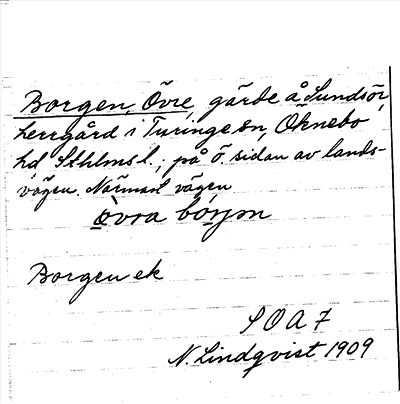 Borgen, Övre, gärde å Sundsör,
herrgård i Turinge sn, Öknebo
hd, Sthlms l.; på ö. sidan av lands-
vägen. Närmast vägen
òvra bórjən
Borgen ek
SOA 7
N. Lindqvist 1909